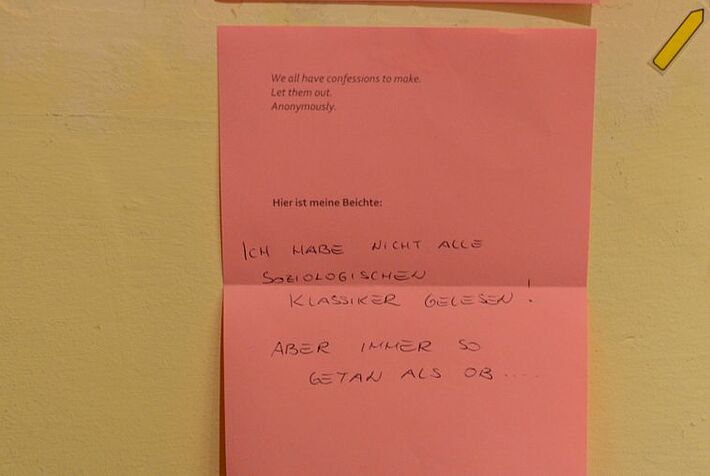 We all have confessions to make.
Let them out.
Anonymously.
Hier ist meine Beichte:
ICH HABE NICHT ALLE
SOZIOLOGISCHEN
KLASSIKER GELESEN!
ABER IMMER SO
GETAN ALS OB....